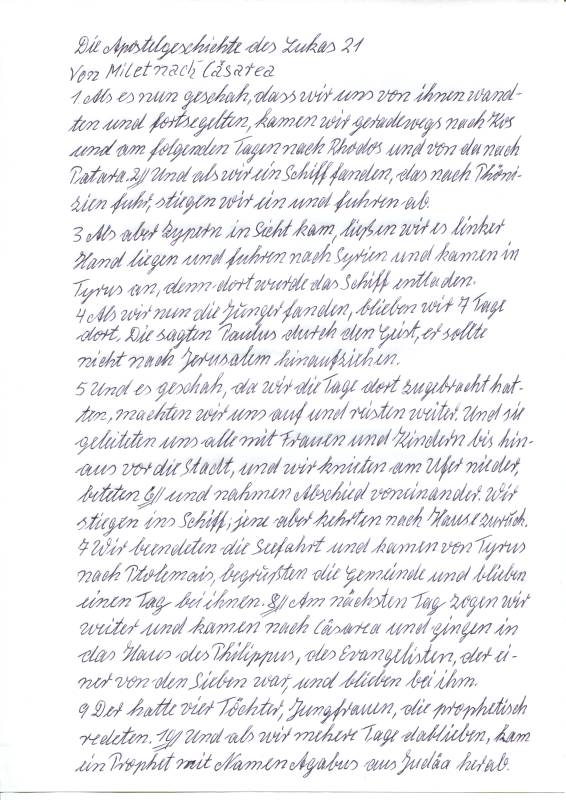 Die Apostelgeschichte des Lukas 21
Von Milet nach Cäsarea
1 Als es nun geschah, dass wir uns von ihnen wand-
ten und fortsegelten, kamen wir geradewegs nach Kos
und am folgenden Tagen nach Rhodos und von da nach
Patara. 2// Und als wir ein Schiff fanden, das nach Phöni-
zien fuhr, stiegen wir ein und fuhren ab.
3 Als aber Zypern in Sicht kam, ließen wir es linker
Hand liegen und fuhren nach Syrien und kamen in
Tyrus an, denn dort wurde das Schiff entladen.
4 Als wir nun die Jünger fanden, blieben wir 7 Tage
dort. Die sagten Paulus durch den Geist, er sollte
nicht nach Jerusalem hinaufziehen.
5 Und es geschah, da wir die Tage dort zugebracht hat-
ten, machten wir uns auf und reisten weiter. Und sie
geleiteten uns alle mit Frauen und Kindern bis hin-
aus vor die Stadt, und wir knieten am Ufer nieder,
beteten 6// und nahmen Abschied voneinander. Wir
stiegen ins Schiff; jene aber kehrten nach Hause zurück.
7 Wir beendeten die Seefahrt und kamen von Tyrus
nach Ptolemais, begrüßten die Gemeinde und blieben
einen Tag bei ihnen. 8// Am nächsten Tag zogen wir
weiter und kamen nach Cäsarea und gingen in
das Haus des Philippus, des Evangelisten, der ei-
ner von den Sieben war, und blieben bei ihm.
9 Der hatte vier Töchter, Jungfrauen, die prophetisch
redeten. 10// Und als wir mehere Tage dablieben, kam
ein Prophet mit Namen Agabus aus Judäa herab.